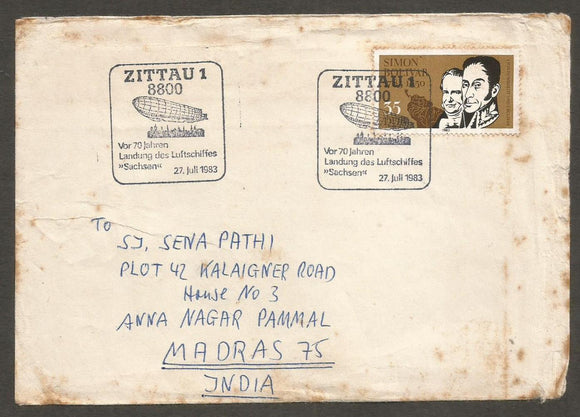 ZITTAU 1
8800
Vor 70 Jahren
Landung des Luftschiffes
»Sachsen«
27. Juli 1983
SIMON
BOLIVAR
35
DDR
ZITTAU 1
8800
Vor 70 Jahren
Landung des Luftschiffes
»Sachsen«
27. Juli 1983
To
SJ. SENA PATHI
PLOT 42 KALAIGNER ROAD
House No 3
ANNA NAGAR PAMMAL
MADRAS 75
INDIA